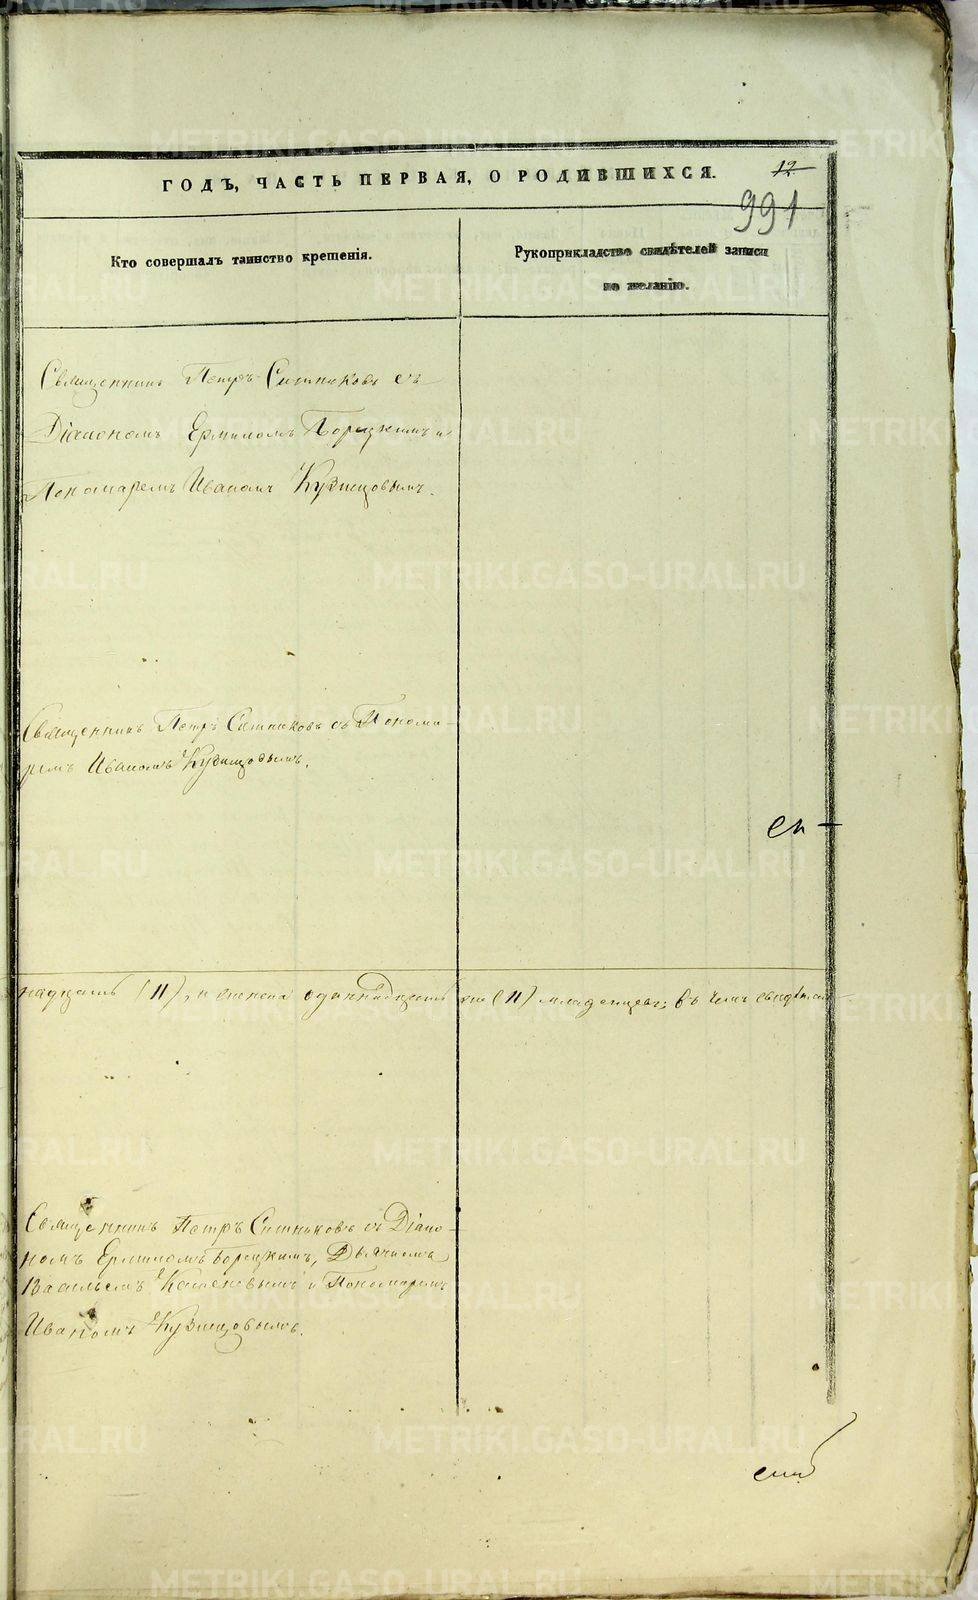 ГОДЪ, ЧАСТЬ ПЕРВАЯ, О РОДИВШИХСЯ.
12
991
Кто совершалъ таинство крещенія.
Рукоприкладство свидѣтелей записи
по желанію.
Священникъ Петръ Ситниковъ съ
Діакономъ Ермиломъ Борецкимъ и
Пономаремъ Иваномъ Кузнецовымъ.
Священникъ Петръ Ситниковъ съ Понома-
ремъ Иваномъ Кузнецовымъ.
надцать (11), и женска одиннадцать (11) младенцевъ; въ чемъ свидѣтель-
Священникъ Петръ Ситниковъ съ Діако-
номъ Ермиломъ Борецкимъ, Дьячкомъ
Васильемъ и Пономаремъ
Иваномъ Кузнецовымъ.
METRIKI.GASO-URAL.RU